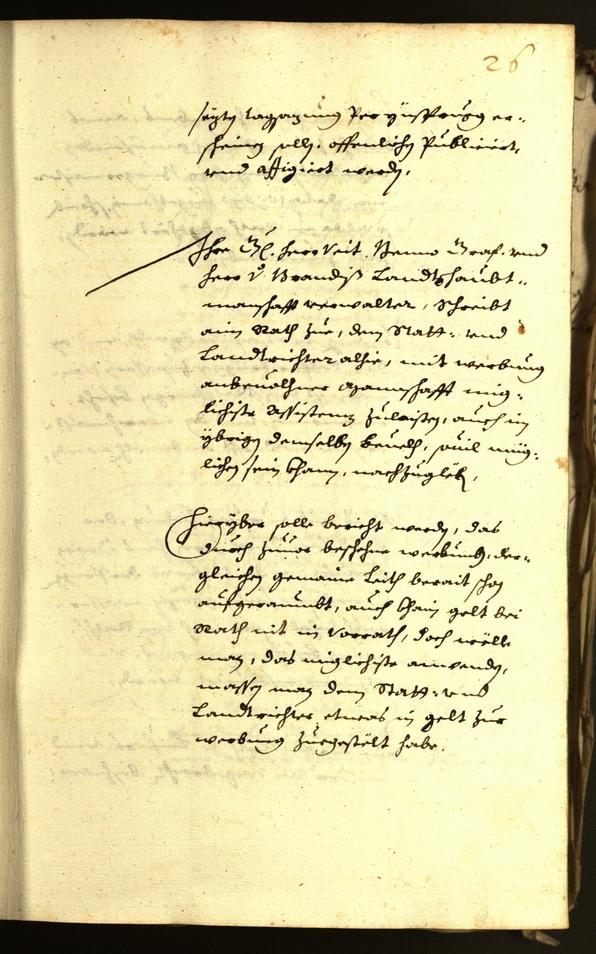 26
sezten tagsazung per ynsprung er-
scheinen sollen. offentlichen Publiciert,
vnd affigiert werden.
Ihre Gl. herr Veit. Benno Graf. vnd
herr v. Brandiß Landtshaubt-
manschafft verwalter, schreibt
ain Rath zue, dem Statt- vnd
Landtrichter alhie, mit werbung
anbeuolhner Mannschafft mig-
lichste Assistenz zulaisten, auch in
ybrigen demselben beuelch, souil müg-
lichen sein khann, nachzugleben.
Hieryber solle bericht werden, das
durch zuuor beschehne werbung, der-
gleichen gemaine Leith berait schon
aufgeraumbt, auch khain gelt bei
Rath nit in vorrath, doch welle
man, das miglichste anwenden,
massen man dem Statt- vnd
Landtrichter etwas in gelt zur
werbung zuegestelt habe.